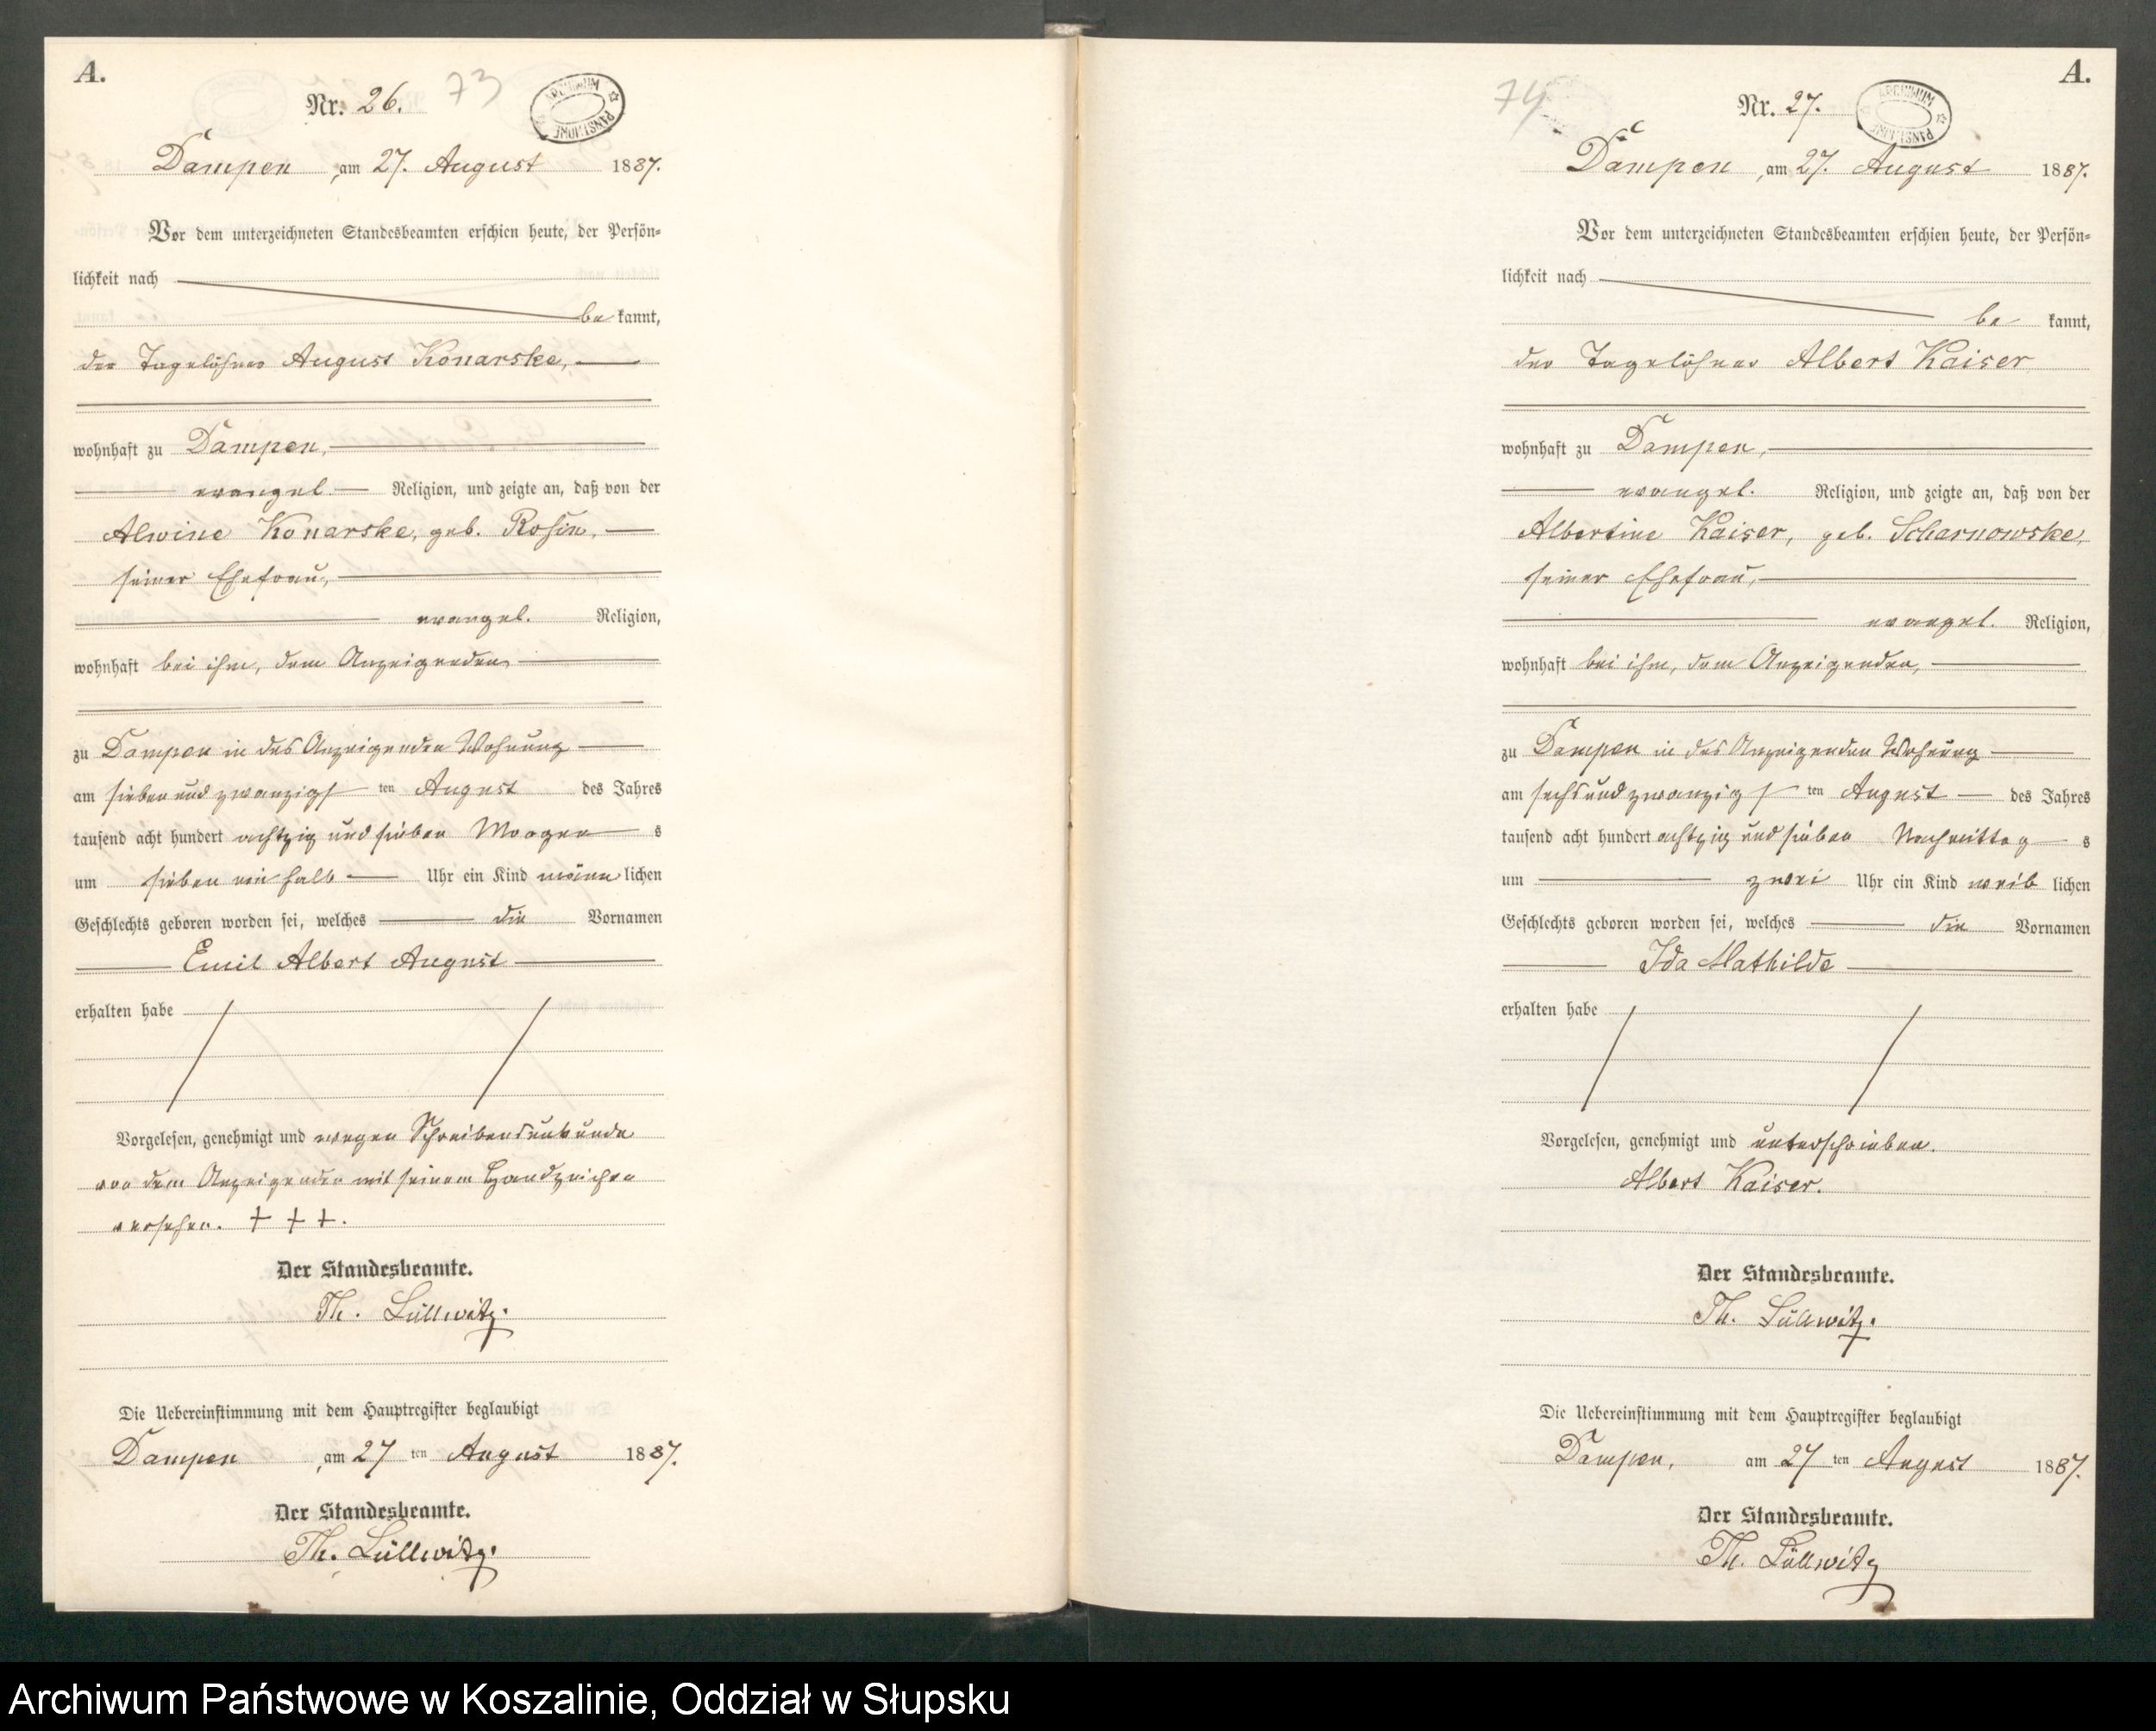 A.
Nr. 26.
73
ARCHIWUM PAŃSTWOWE
Dampen, am 27. August 1887.
Vor dem unterzeichneten Standesbeamten erschien heute, der Persön-
lichkeit nach
be kannt,
der Tagelöhner August Konarske,
wohnhaft zu Dampen,
evangel. Religion, und zeigte an, daß von der
Alwine Konarske, geb. Rosin,
seiner Ehefrau,
evangel. Religion,
wohnhaft bei ihm, dem Anzeigenden,
zu Dampen in des Anzeigenden Wohnung
am sieben und zwanzigsten August des Jahres
tausend acht hundert achtzig und sieben Morgens
um sieben ein halb Uhr ein Kind männlichen
Geschlechts geboren worden sei, welches die Vornamen
Emil Albert August
erhalten habe
Vorgelesen, genehmigt und wegen Schreibensunkunde
von dem Anzeigenden mit seinem Handzeichen
versehen. + + +.
Der Standesbeamte.
Th. Lüllwitz.
Die Uebereinstimmung mit dem Hauptregister beglaubigt
Dampen, am 27ten August 1887.
Der Standesbeamte.
Th. Lüllwitz.
A.
74
Nr. 27.
ARCHIWUM PAŃSTWOWE
Dampen, am 27. August 1887.
Vor dem unterzeichneten Standesbeamten erschien heute, der Persön-
lichkeit nach
be kannt,
der Tagelöhner Albert Kaiser
wohnhaft zu Dampen,
evangel. Religion, und zeigte an, daß von der
Albertine Kaiser, geb. Scharnowske,
seiner Ehefrau,
evangel. Religion,
wohnhaft bei ihm, dem Anzeigenden,
zu Dampen in des Anzeigenden Wohnung
am sechs und zwanzigsten August des Jahres
tausend acht hundert achtzig und sieben Nachmittags
um zwei Uhr ein Kind weiblichen
Geschlechts geboren worden sei, welches die Vornamen
Ida Mathilde
erhalten habe
Vorgelesen, genehmigt und unterschrieben.
Albert Kaiser.
Der Standesbeamte.
Th. Lüllwitz.
Die Uebereinstimmung mit dem Hauptregister beglaubigt
Dampen, am 27ten August 1887.
Der Standesbeamte.
Th. Lüllwitz
Archiwum Państwowe w Koszalinie, Oddział w Słupsku